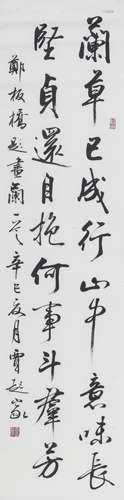 蘭草已成行山中意味長
堅貞還自抱何事斗羣芳
鄭板橋題畫蘭 辛巳夏月賈起家